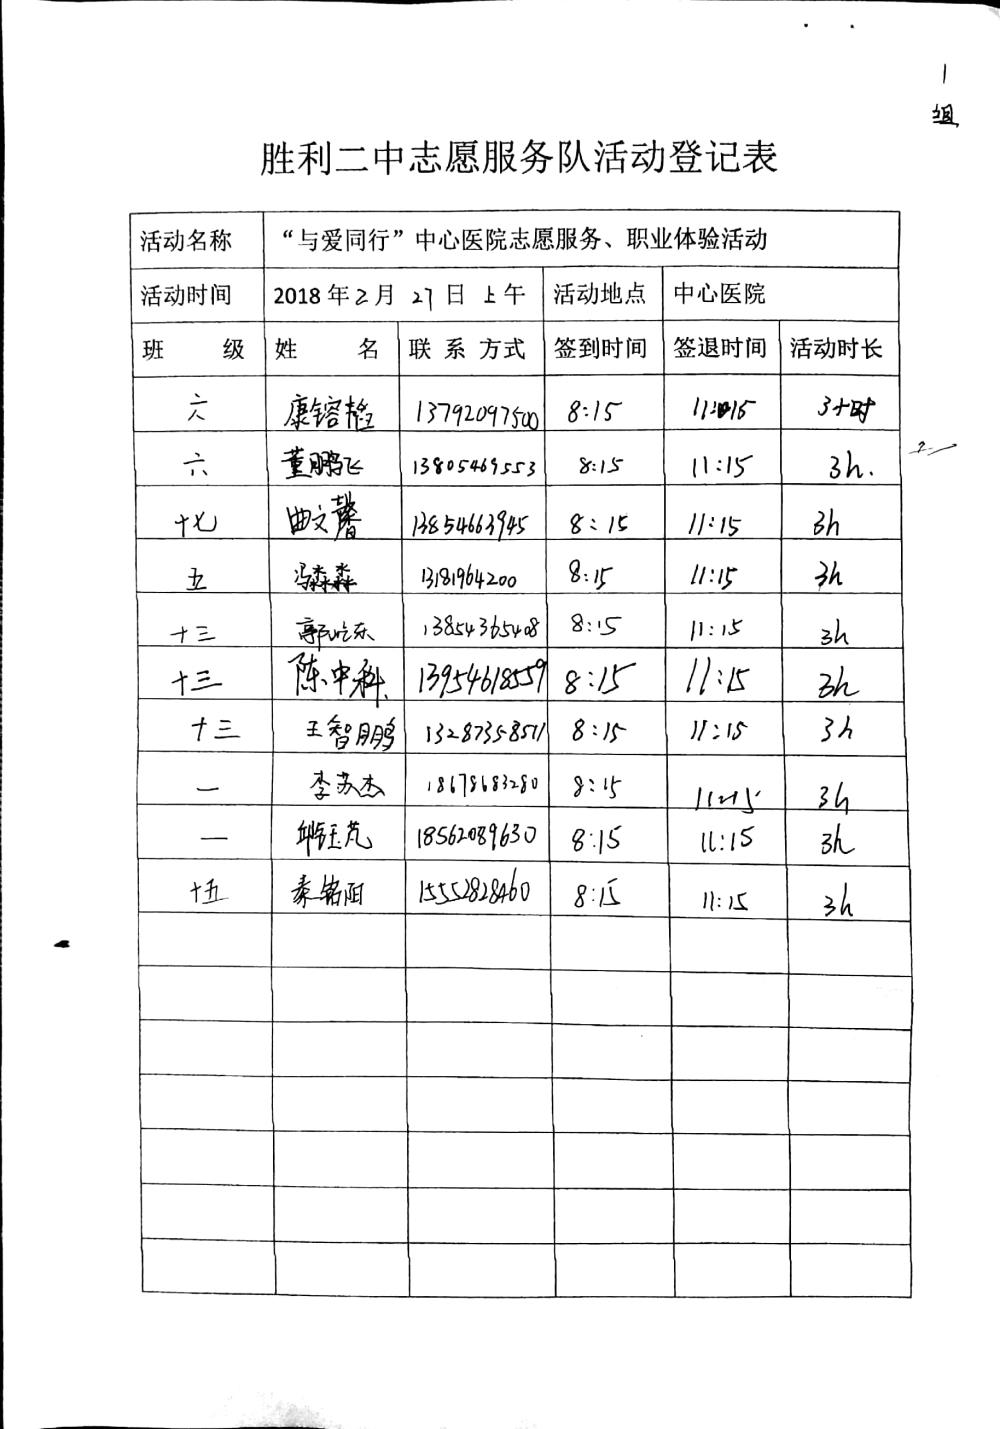 1
组
胜利二中志愿服务队活动登记表
活动名称 “与爱同行”中心医院志愿服务、职业体验活动
活动时间 2018年2月 27日 上午 活动地点 中心医院
班 级 姓 名 联 系 方式 签到时间 签退时间 活动时长
六 康镕 13792097500 8:15 11:15 3小时
六 董鹏飞 13805469553 8:15 11:15 3h.
十七 曲文馨 13854663945 8:15 11:15 3h
五 冯淼淼 13181964200 8:15 11:15 3h
十三 郭屹东 13854365408 8:15 11:15 3h
十三 陈中科 13954618559 8:15 11:15 3h
十三 王智鹏 13287358511 8:15 11:15 3h
一 李苏杰 18678683280 8:15 11:15 3h
一 邱钰芃 18562089630 8:15 11:15 3h
十五 秦铭阳 15552828460 8:15 11:15 3h